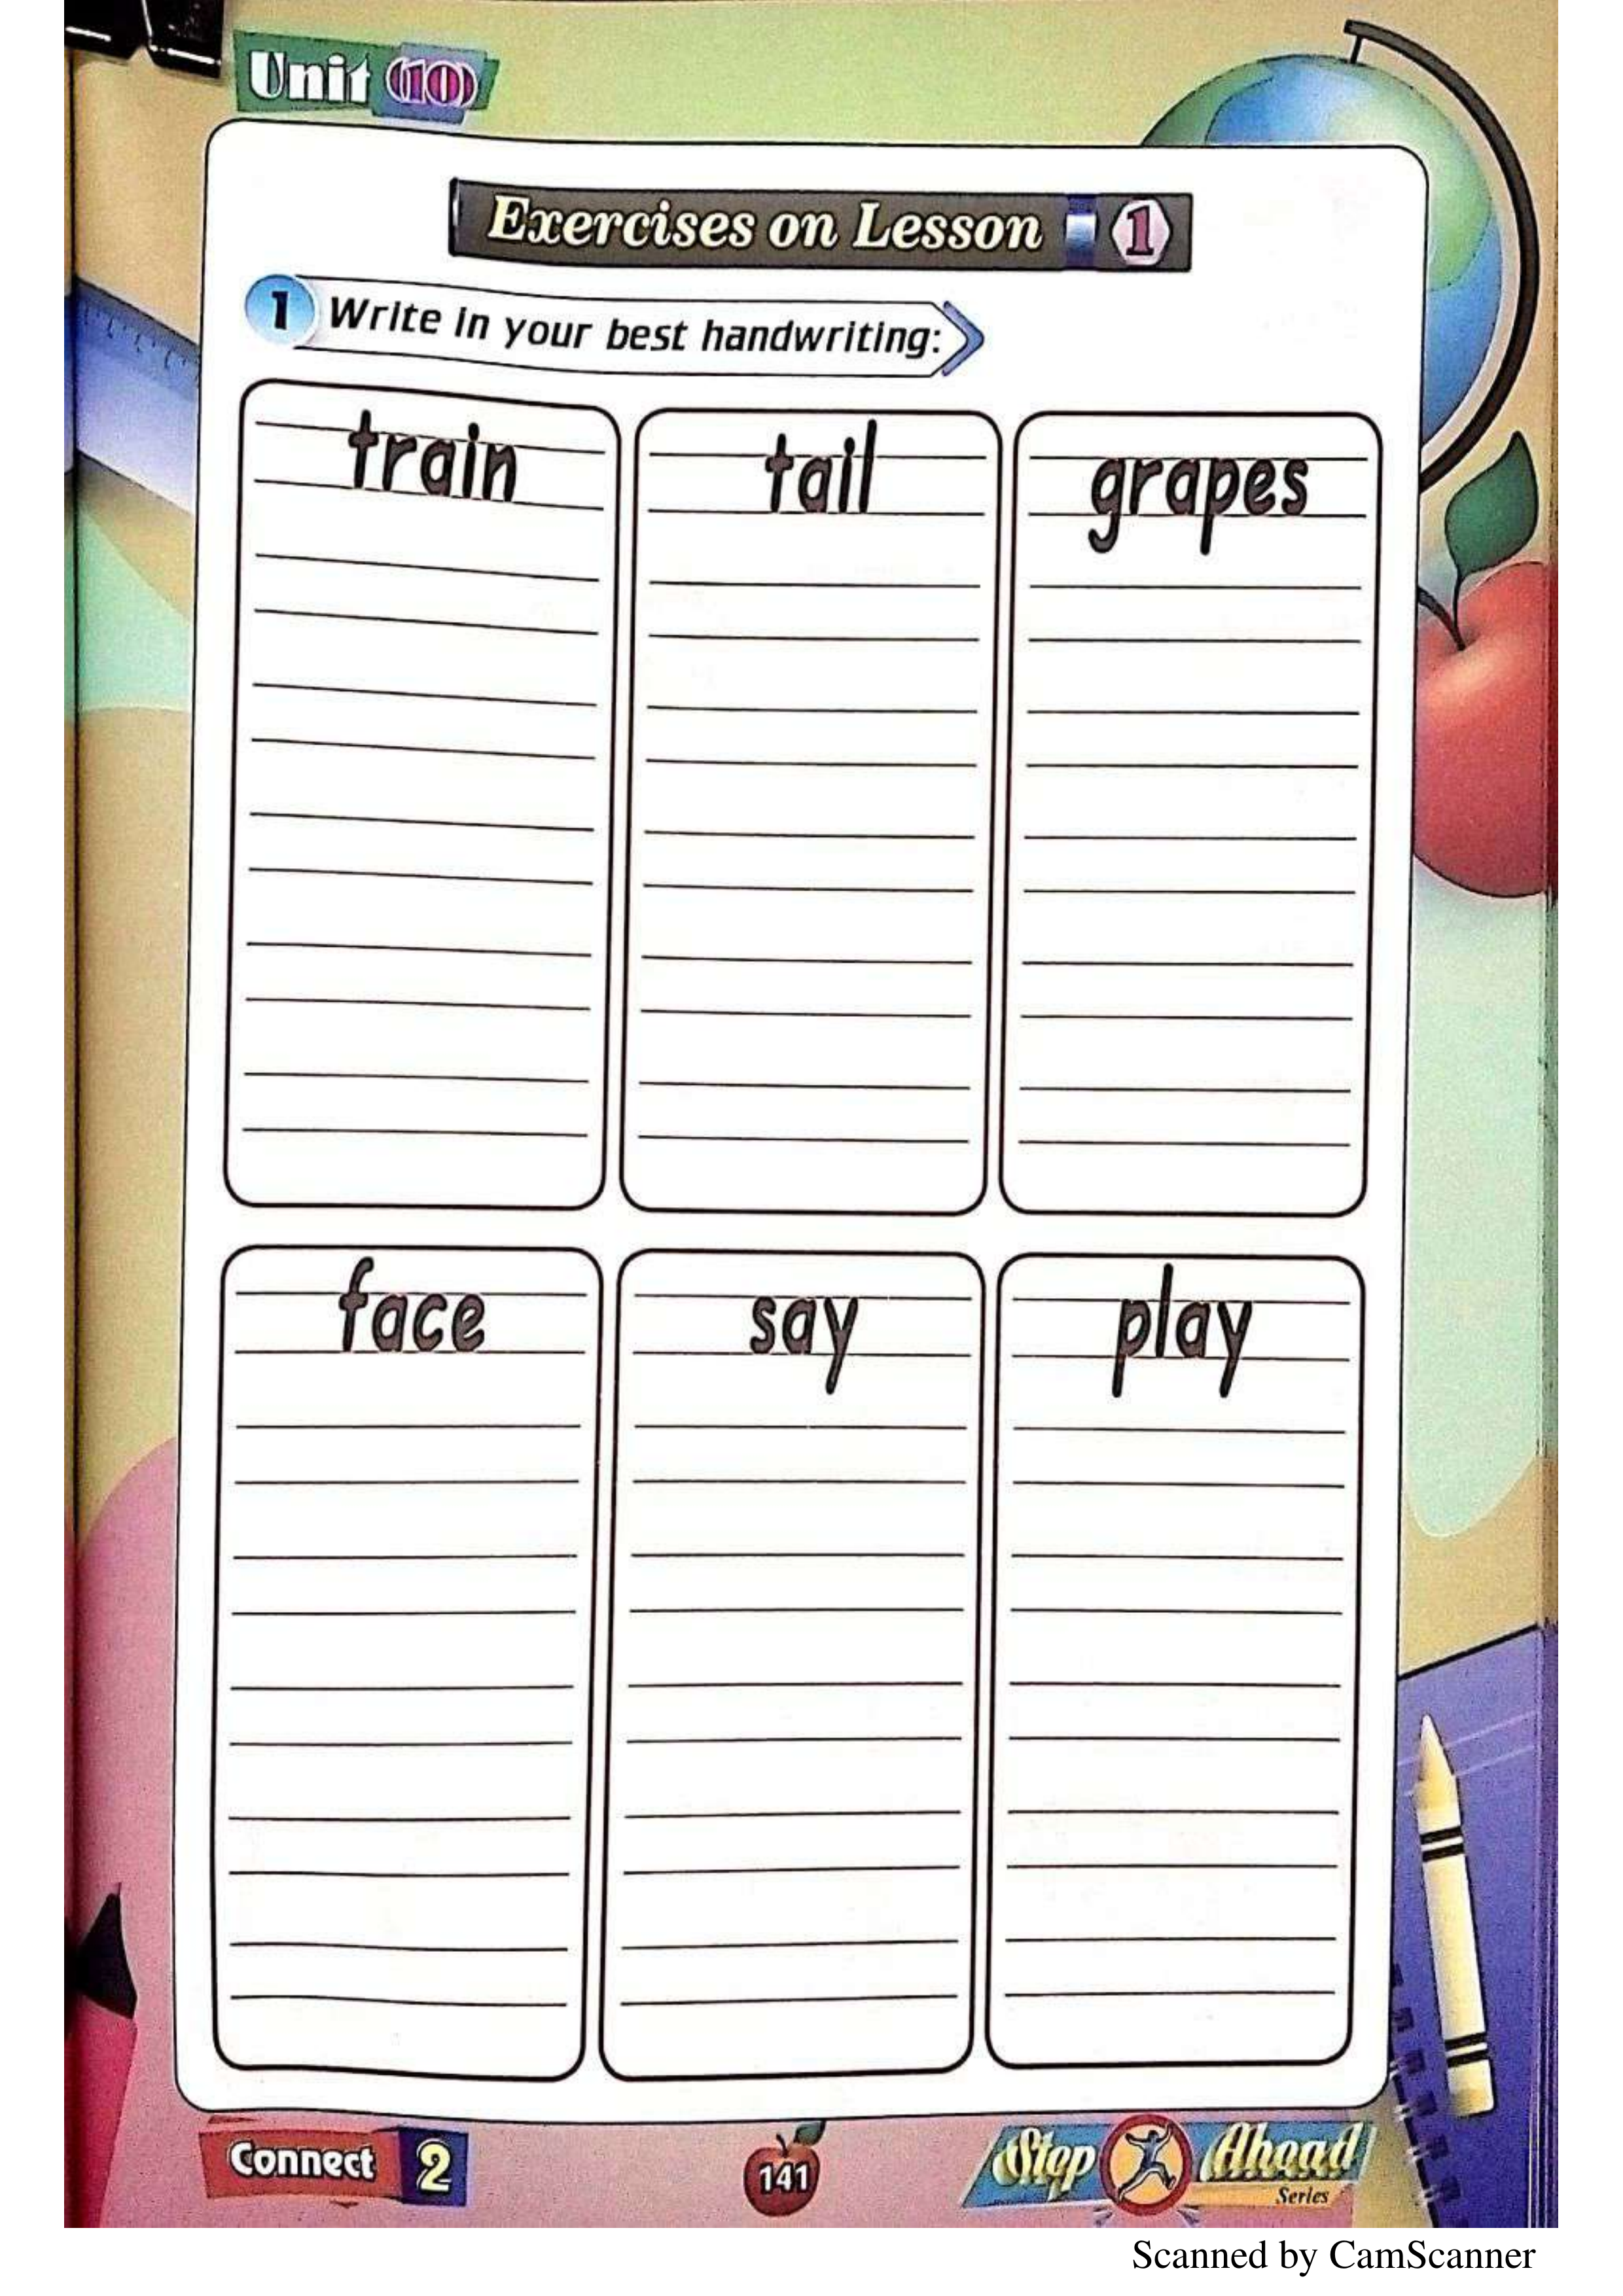 Unit (10)
Exercises on Lesson 1
1 Write in your best handwriting:
train tail grapes
face say play
Connect 2
141
Step Ahead
Series
Scanned by CamScanner